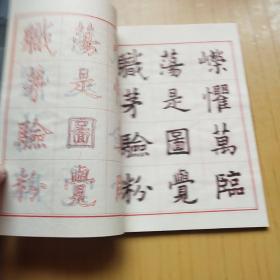 嶸懼萬臨
蕩是圖覺
職茅驗粉
蕩是圖覺
職茅驗粉